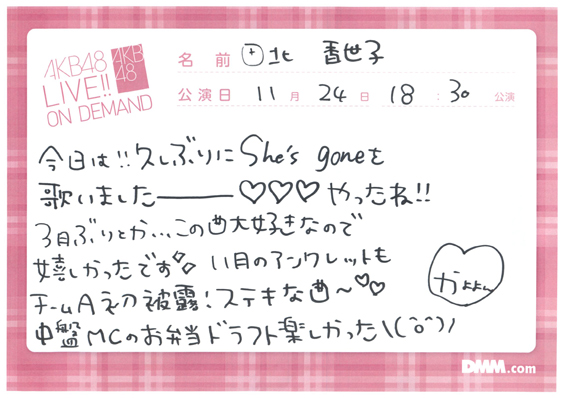 AKB48
LIVE!!
ON DEMAND
AKB
48
名前 田北 香世子
公演日 11月24日 18:30 公演
今日は!!久しぶりにShe's goneを
歌いました———♡♡♡やったね!!
3月ぶりとか...この曲大好きなので
嬉しかったです 11月のアンクレットも
チームA初披露!ステキな曲〜♡♡
中盤MCのお弁当ドラフト楽しかった\(^o^)/
かよよん
DMM.com